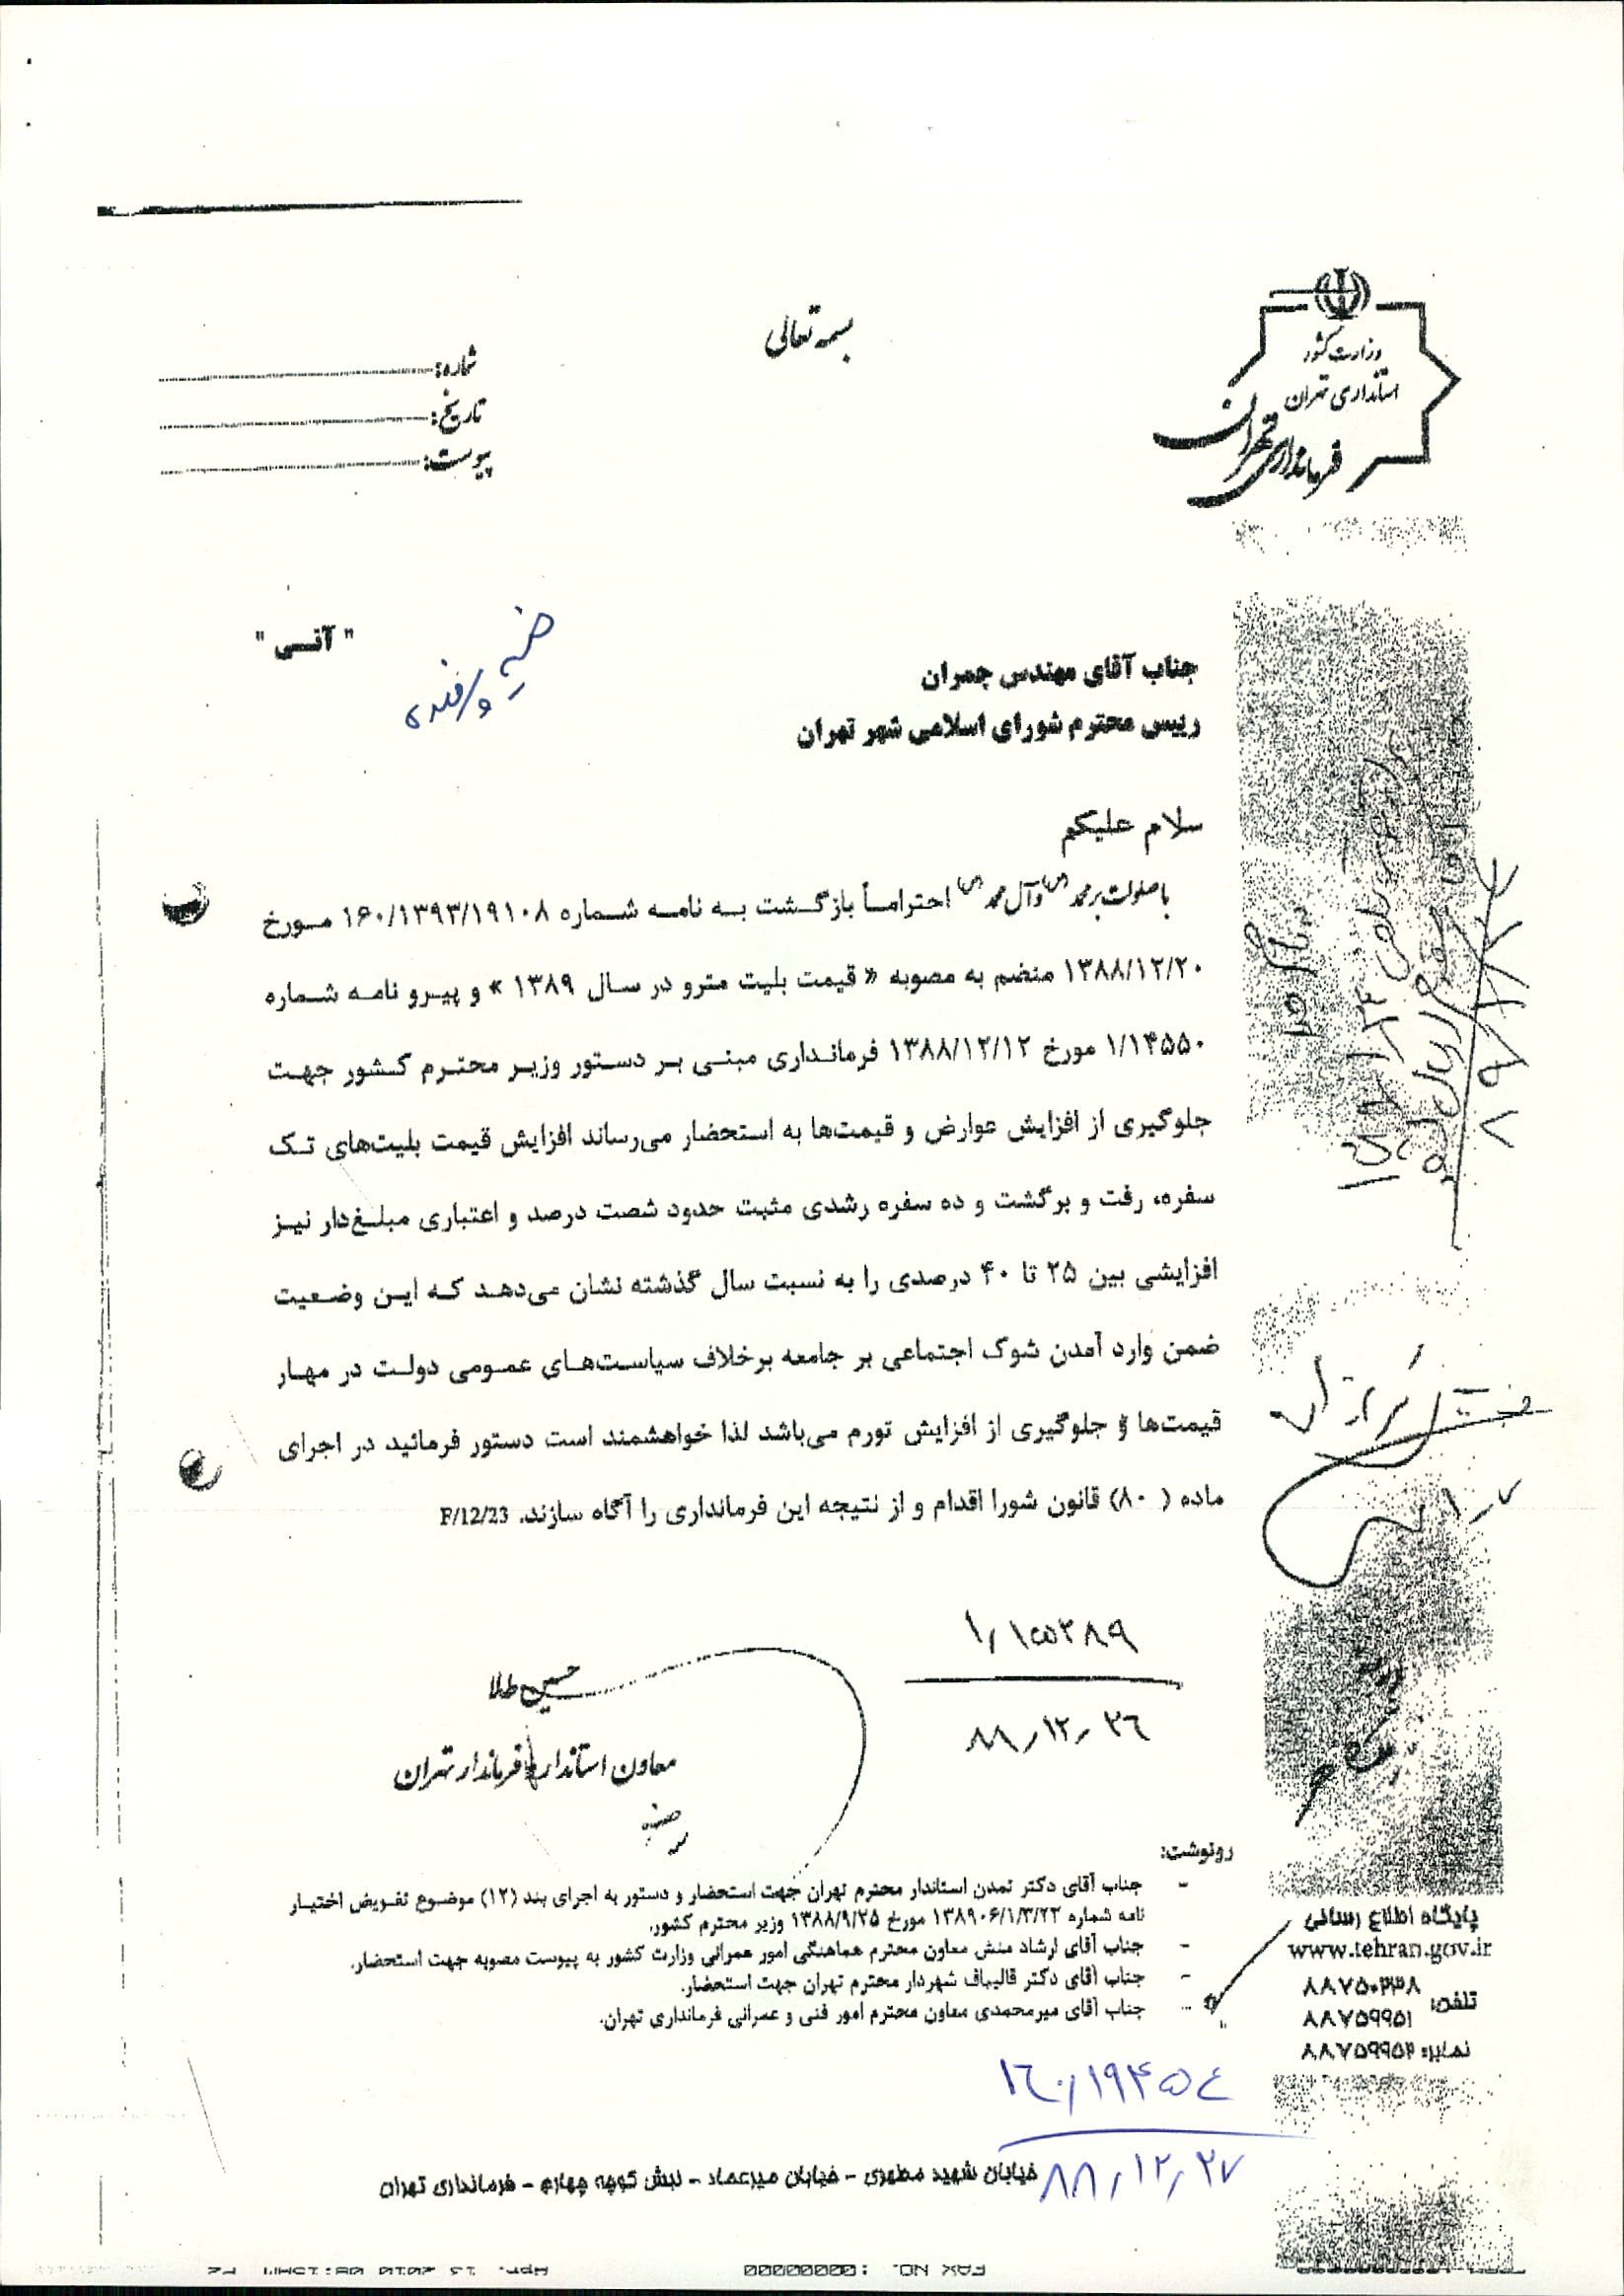 بسمه تعالی
وزارت کشور
استانداری تهران
فرمانداری تهران
شماره:
تاریخ:
پیوست:
" آنـی "
جناب آقای مهندس چمران
رییس محترم شورای اسلامی شهر تهران
سلام علیکم
با صلوات بر محمد (ص) و آل محمد (ص) احتراماً بازگشت به نامه شماره ۱۶۰/۱۳۹۳/۱۹۱۰۸ مورخ
۱۳۸۸/۱۲/۲۰ منضم به مصوبه « قیمت بلیت مترو در سال ۱۳۸۹ » و پیرو نامه شماره
۱/۱۴۵۵۰ مورخ ۱۳۸۸/۱۲/۱۲ فرمانداری مبنی بر دستور وزیر محترم کشور جهت
جلوگیری از افزایش عوارض و قیمت‌ها به استحضار می‌رساند افزایش قیمت بلیت‌های تک
سفره، رفت و برگشت و ده سفره رشدی مثبت حدود شصت درصد و اعتباری مبلغ‌دار نیز
افزایشی بین ۲۵ تا ۴۰ درصدی را به نسبت سال گذشته نشان می‌دهد که این وضعیت
ضمن وارد آمدن شوک اجتماعی بر جامعه برخلاف سیاست‌های عمومی دولت در مهار
قیمت‌ها و جلوگیری از افزایش تورم می‌باشد لذا خواهشمند است دستور فرمائید در اجرای
ماده ( ۸۰) قانون شورا اقدام و از نتیجه این فرمانداری را آگاه سازند. F/12/23
۱/۱۵۳۸۹
۸۸/۱۲/۲۶
حسین طلا
معاون استاندار و فرماندار تهران
رونوشت:
- جناب آقای دکتر تمدن استاندار محترم تهران جهت استحضار و دستور به اجرای بند (۱۲) موضوع تفویض اختیار
نامه شماره ۱۳۸۹۰۶/۱/۳/۲۲ مورخ ۱۳۸۸/۹/۲۵ وزیر محترم کشور.
- جناب آقای ارشاد منش معاون محترم هماهنگی امور عمرانی وزارت کشور به پیوست مصوبه جهت استحضار.
- جناب آقای دکتر قالیباف شهردار محترم تهران جهت استحضار.
- جناب آقای میرمحمدی معاون محترم امور فنی و عمرانی فرمانداری تهران.
پایگاه اطلاع رسانی
www.tehran.gov.ir
تلفن: ۸۸۷۵۰۳۳۸
۸۸۷۵۹۹۵۱
نمابر: ۸۸۷۵۹۹۵۲
۱۶۰/۱۹۴۵۴
۸۸/۱۲/۲۷
خیابان شهید مطهری - خیابان میرعماد - نبش کوچه چهارم - فرمانداری تهران
FAX NO. :00000000